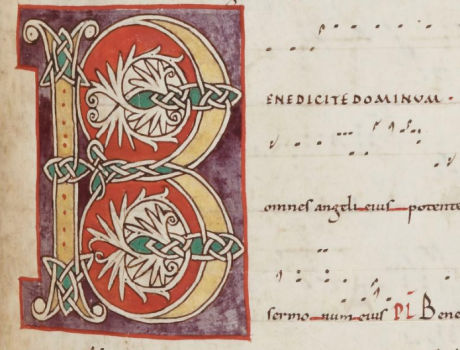 BENEDICITE DOMINUM ·
omnes angeli eius potente
sermo num eius Pſ Bene